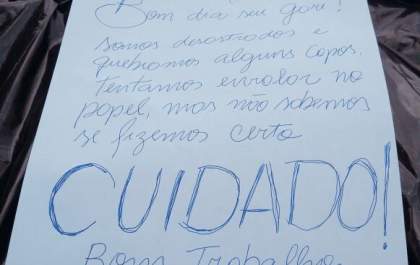 Bom dia seu gari!
somos desastrados e
quebramos alguns copos.
Tentamos enrolar no
papel, mas não sabemos
se fizemos certo
CUIDADO!
Bom Trabalho